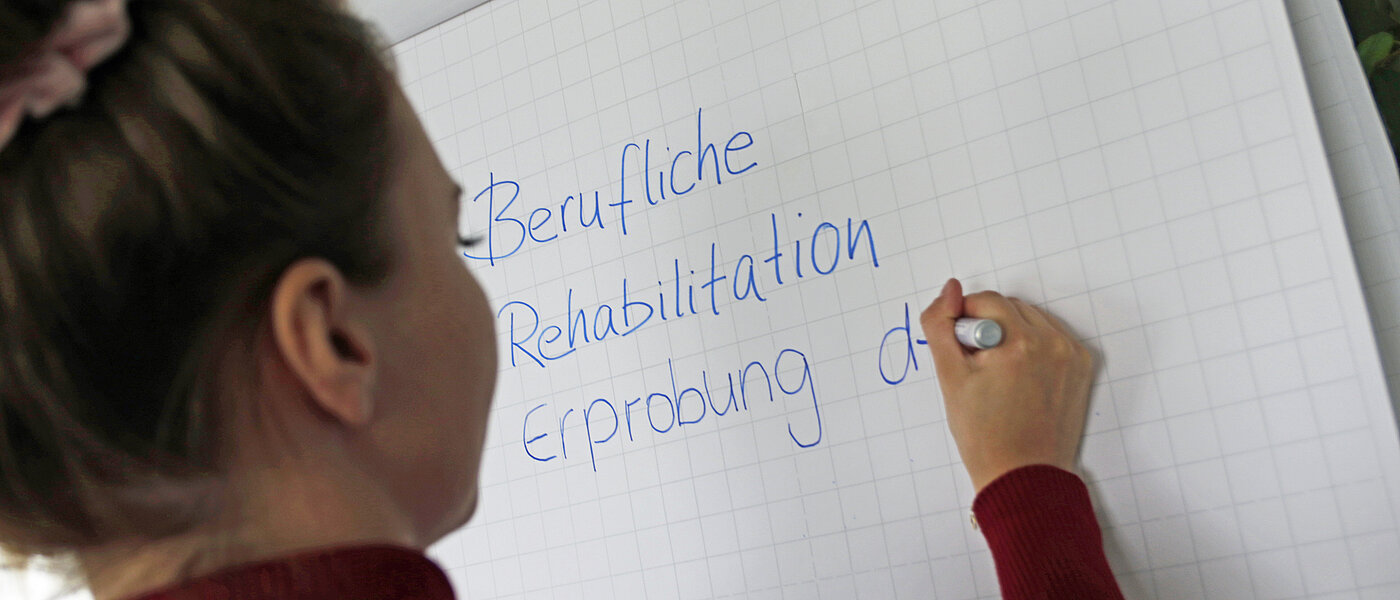 Berufliche
Rehabilitation
Erprobung d